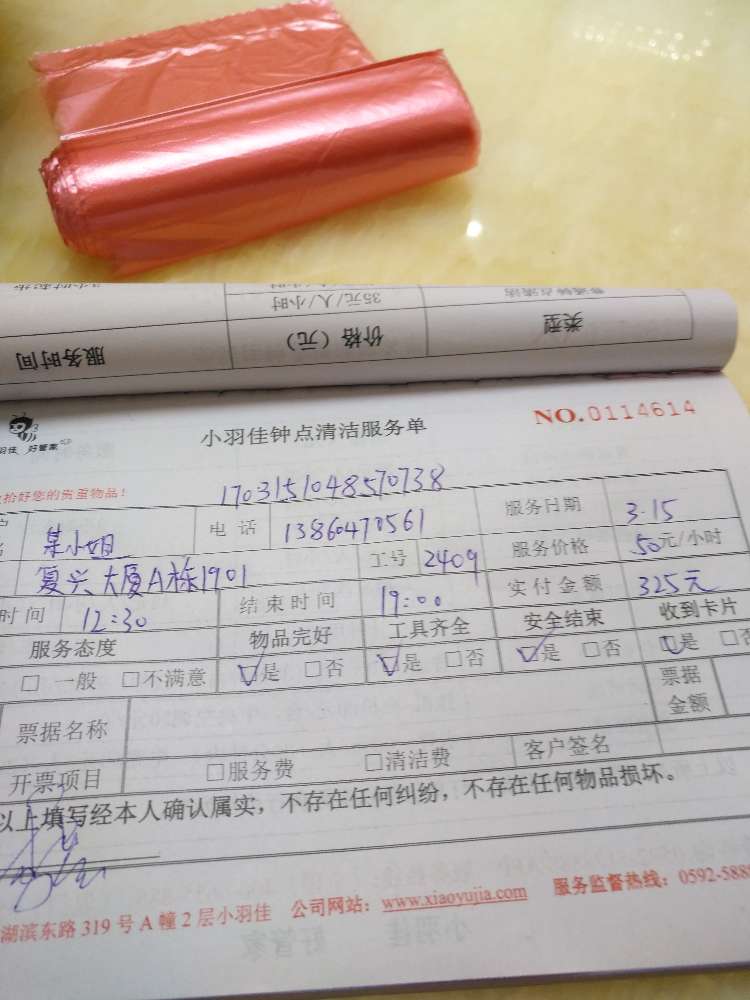 服务时间 价格（元） 类型
35元/人/小时
小羽佳钟点清洁服务单 NO.0114614
羽佳 好管家
拾好您的贵重物品！ 1703151048570738
某小姐 电话 13860470561 服务日期 3.15
复兴大厦A栋1901 工号 2409 服务价格 50元/小时
时间 12:30 结束时间 19:00 实付金额 325元
服务态度 物品完好 工具齐全 安全结束 收到卡片
□ 一般 □不满意 □是 □否 □是 □否 □是 □否 □是 □否
票据名称 票据金额
开票项目 □服务费 □清洁费 客户签名
以上填写经本人确认属实，不存在任何纠纷，不存在任何物品损坏。
湖滨东路 319 号 A 幢 2 层小羽佳 公司网站：www.xiaoyujia.com 服务监督热线：0592-588